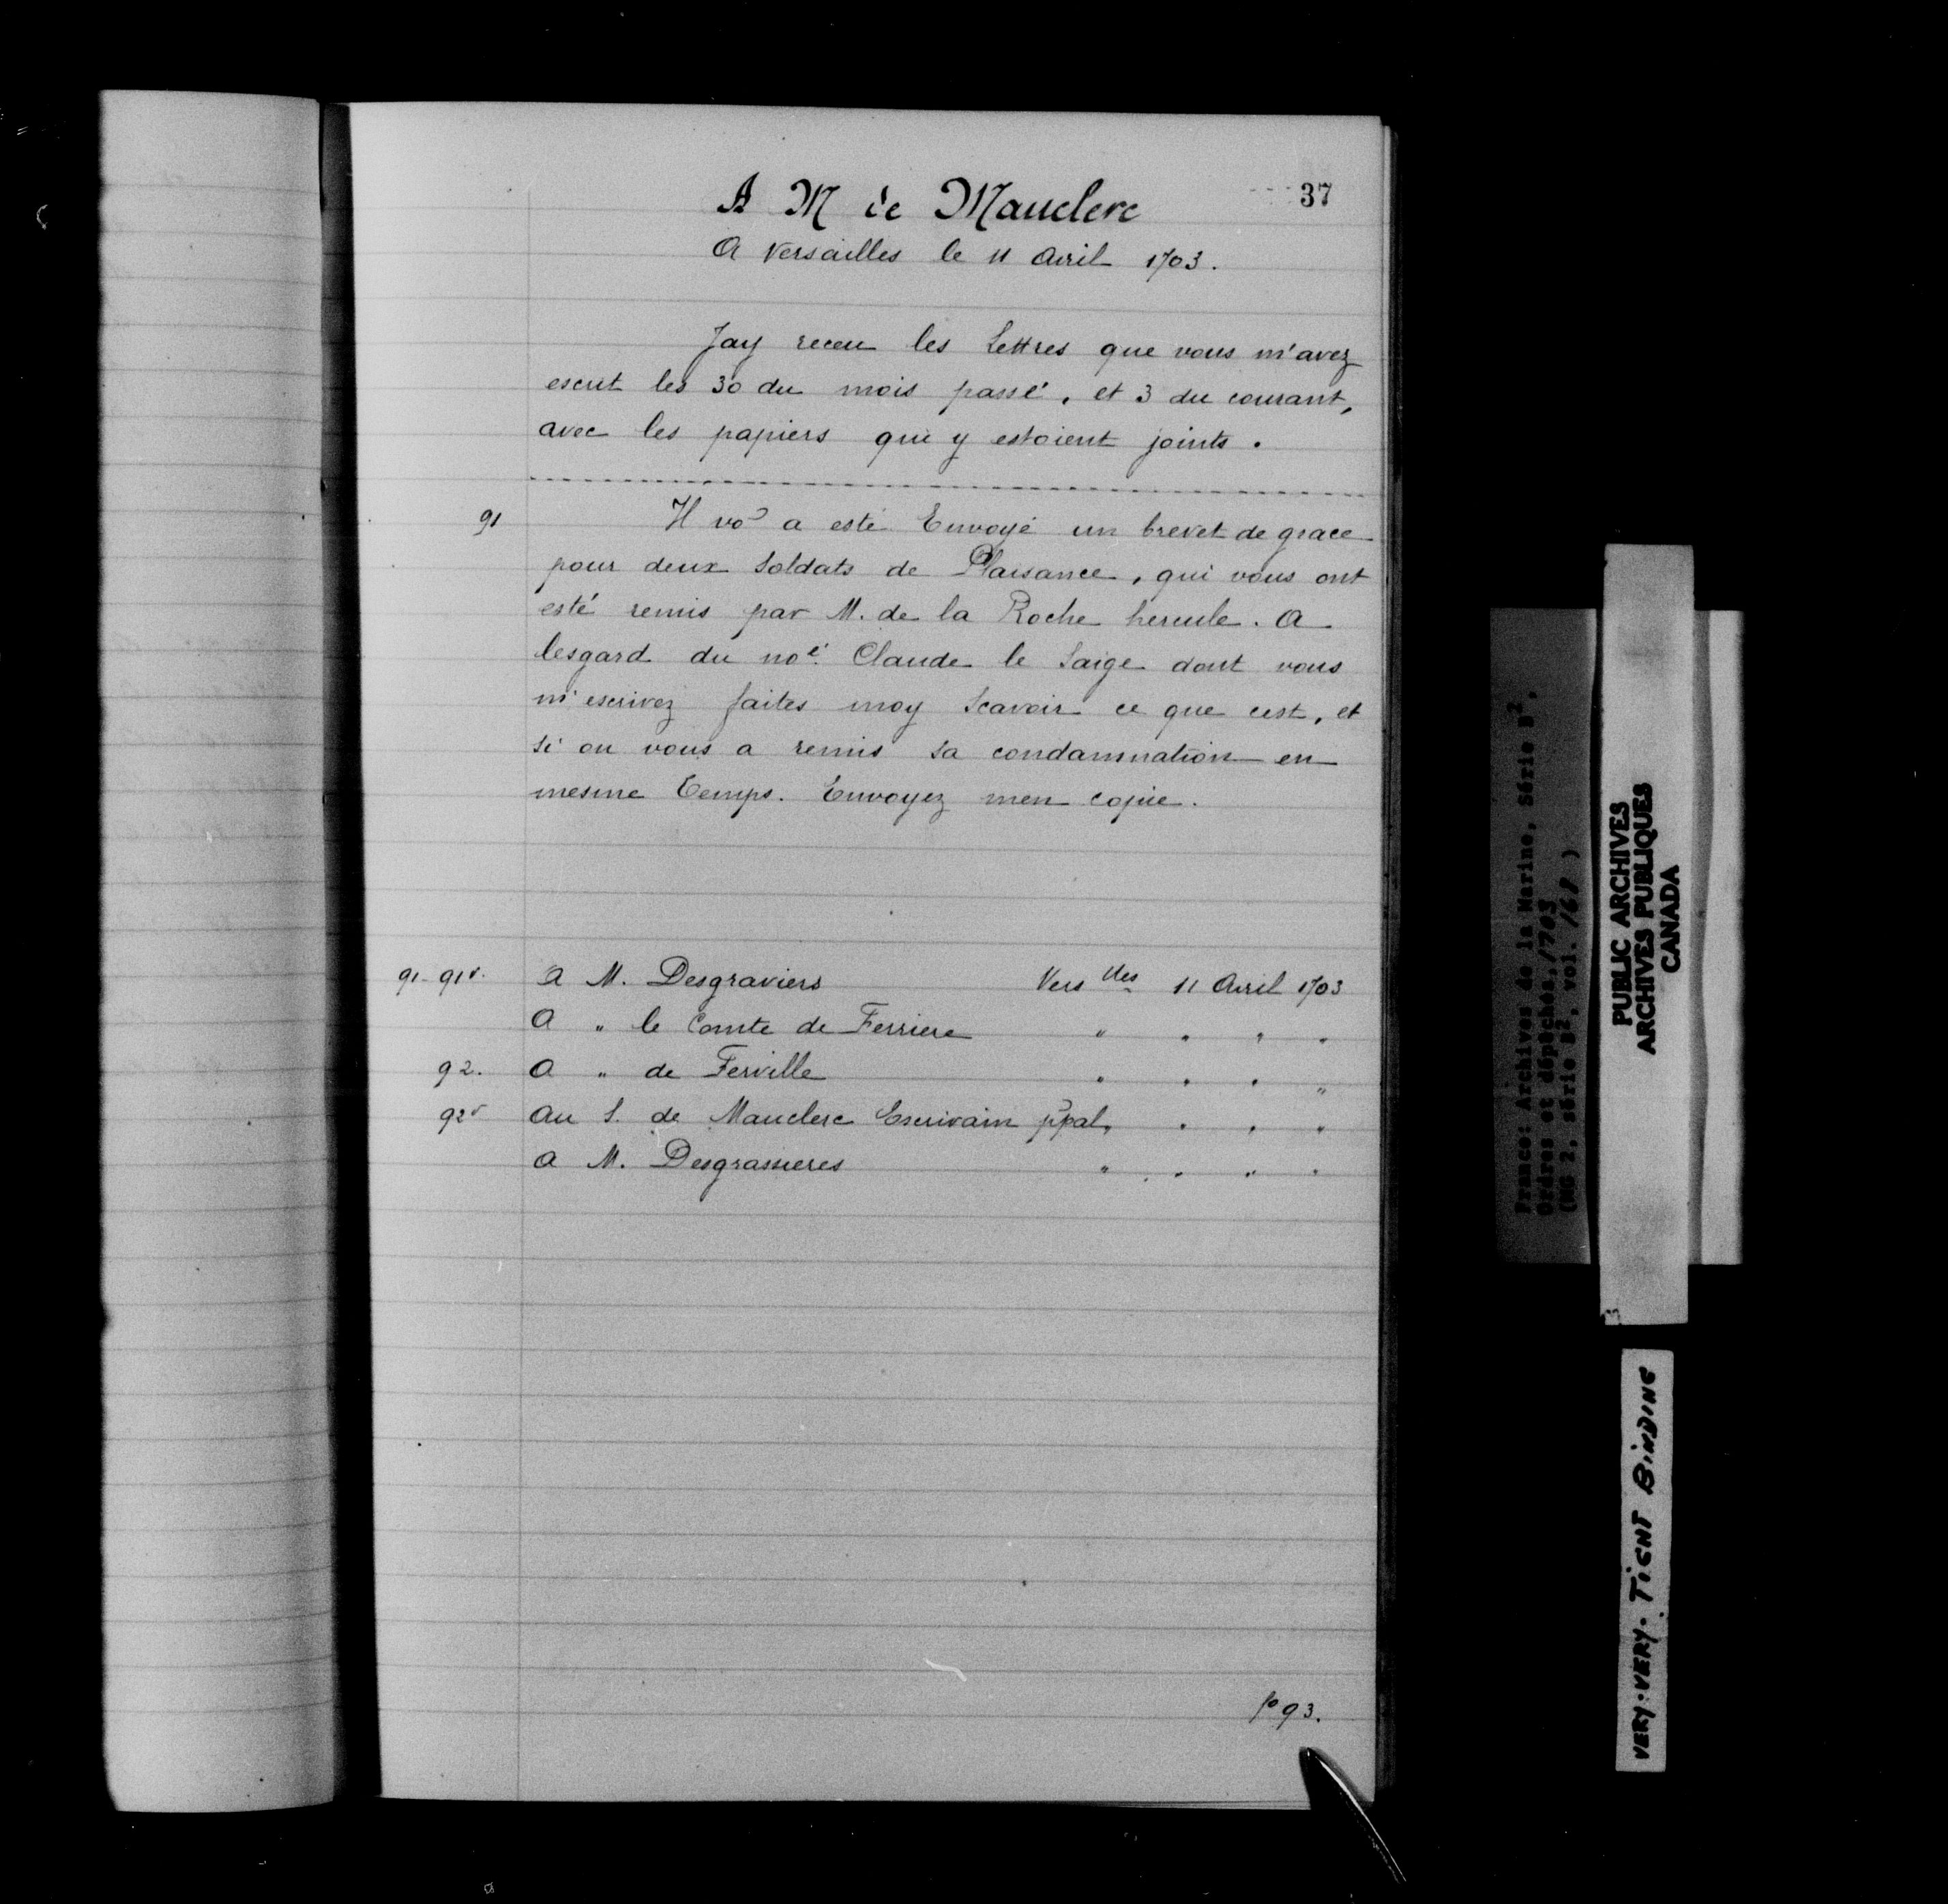 37
A M de Mauclerc
A Versailles le 11 Avril 1703.
Jay receu les Lettres que vous m'avez
escrit les 30 du mois passé, et 3 du courant,
avec les papiers qui y estoient joints.
91 Il vo⁾ a esté Envoyé un brevet de grace
pour deux soldats de Plaisance, qui vous ont
esté remis par M. de la Roche hercule. A
lesgard du noé. Claude le Saige dont vous
m'escrivez faites moy scavoir ce que cest, et
si on vous a remis sa condamnation en
mesme temps. Envoyez men copie.
91-91v. A M. Desgraviers Vers lles 11 Avril 1703
A " le Comte de Ferriere " " " "
92. A " de Ferville " " " "
92v Au S. de Mauclerc Escrivain ppal " " " "
A M. Desgrassieres " " " "
fo 93.
France: Archives de la Marine, Série B²,
Ordres et dépêches, 1703
(MG 2, série B², vol. 168)
PUBLIC ARCHIVES
ARCHIVES PUBLIQUES
CANADA
VERY-VERY-TIGHT BINDING